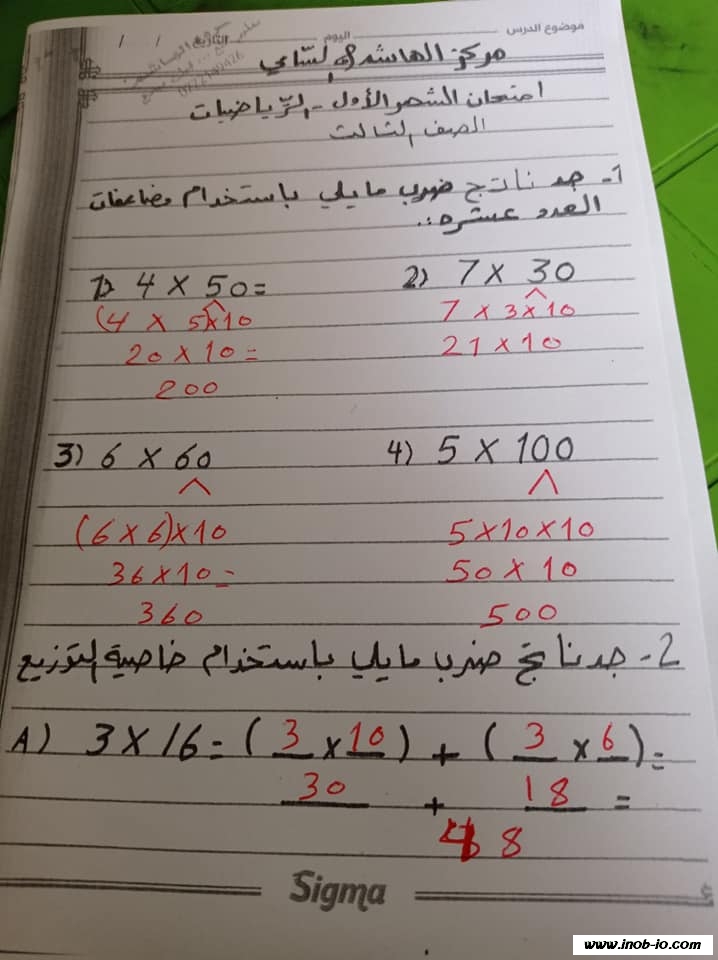 موضوع الدرس اليوم التاريخ / /
مركز الهاشم
امتحان الشهر الأول - الرّياضيات
الصف الثالث
1- جد ناتج ضرب مايلي باستخدام مضاعفات
العدد عشرة..
1) 4 X 50=
(4 X 5X10
20 X 10 =
200
2) 7 X 30
7 X 3X 10
21 X 10
3) 6 X 60
(6 X 6)X10
36X10=
360
4) 5 X 100
5X10X10
50 X 10
500
2- جد ناتج ضرب مايلي باستخدام خاصية التوزيع
A) 3 X 16 = ( 3 X 10 ) + ( 3 X 6 ) =
30 + 18 =
48
Sigma
www.inob-io.com